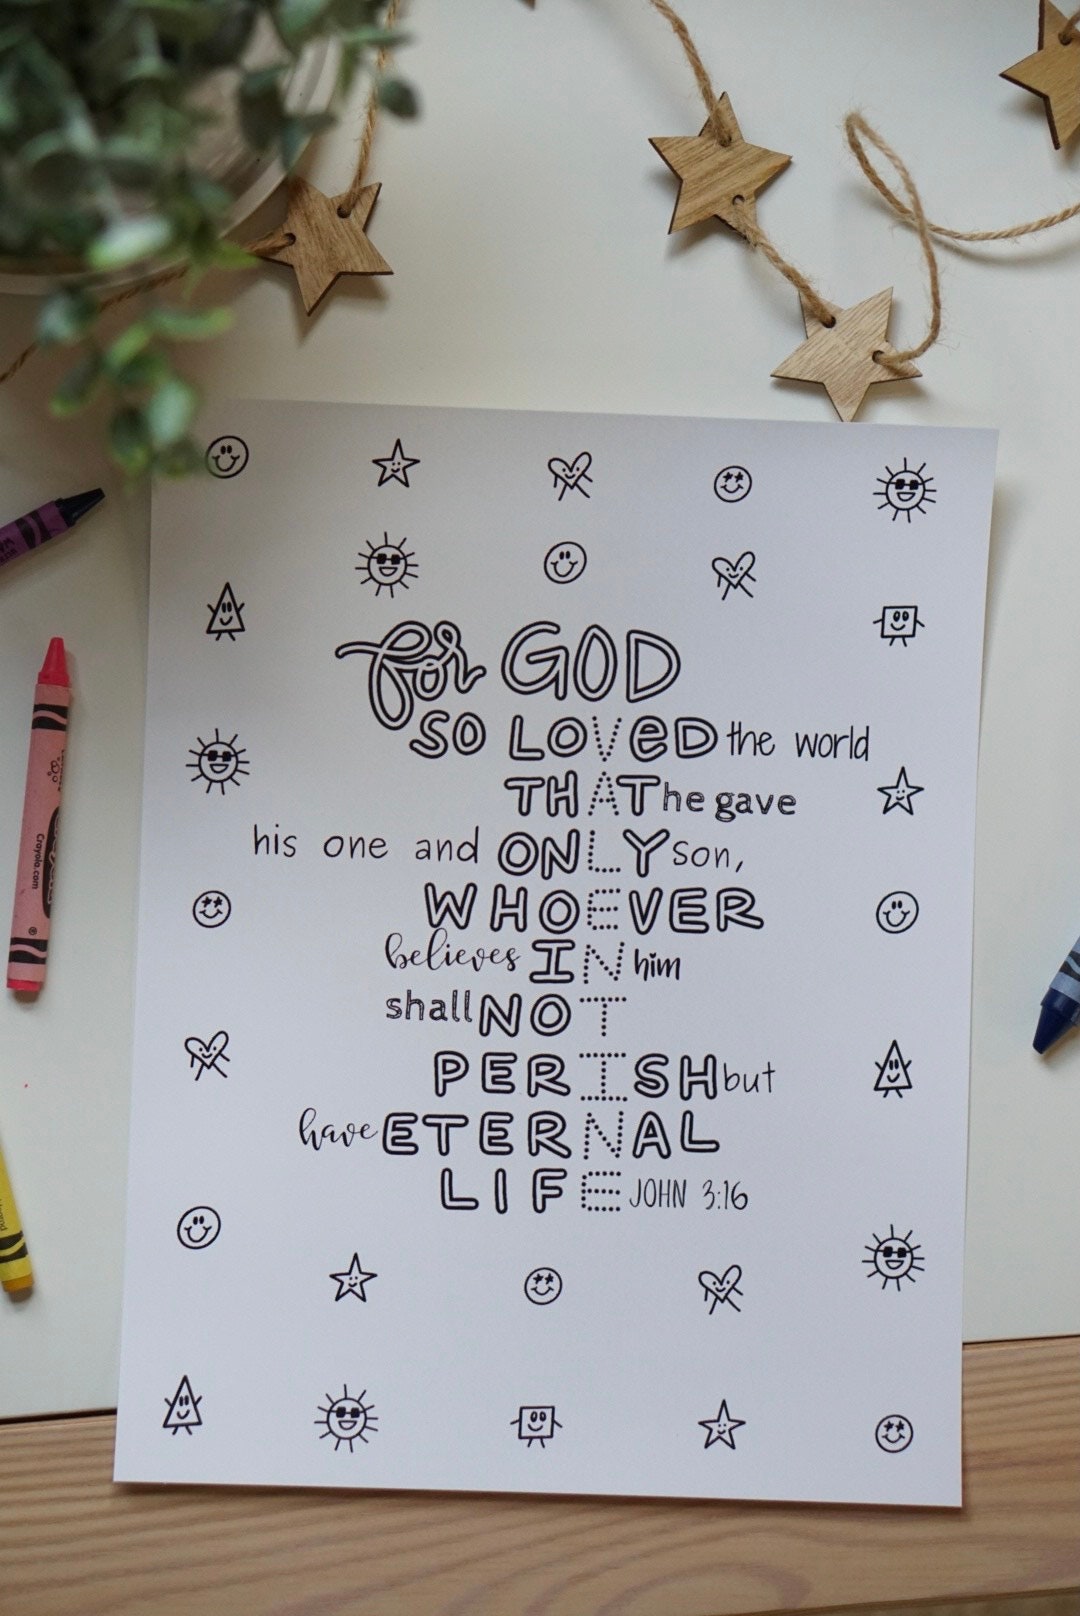 for GOD
SO LOVeD the world
THAT he gave
his one and ONLY son,
WHOEVER
believes IN him
shall NOT
PERISH but
have ETERNAL
LIFE JOHN 3:16
Crayola.com
®